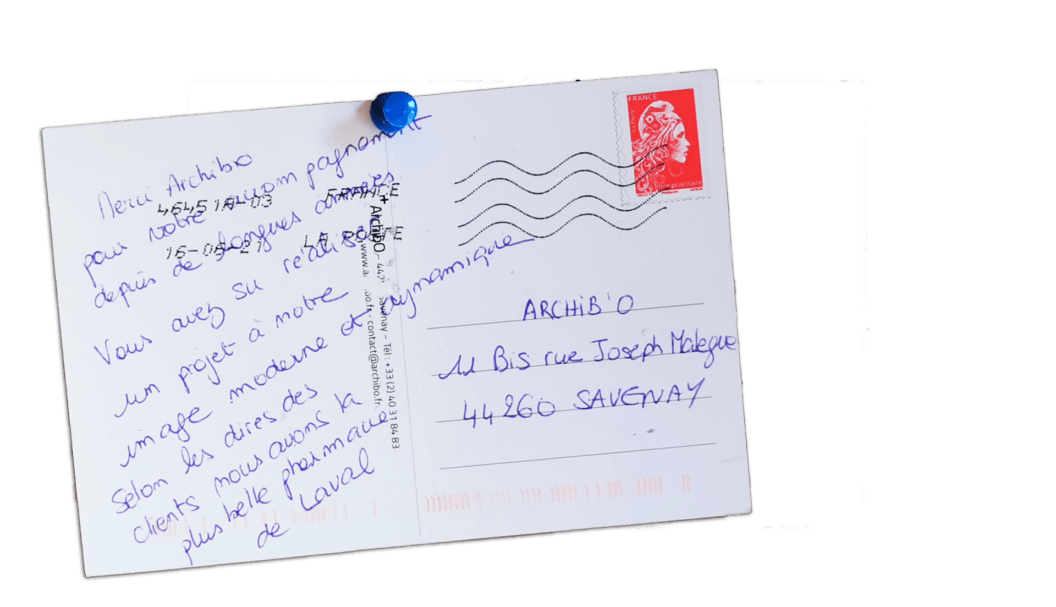 Merci Archibo
pour votre accompagnement
depuis de longues années
Vous avez su réaliser
un projet à notre
image moderne et dynamique
Selon les dires des
clients nous avons la
plus belle pharmacie
de Laval
46451A-03 FRANCE
16-06-21 LA POSTE
+ ArchibO – Savenay – Tél : +33 (2) 40 31 84 83
contact@archibo.fr
FRANCE
prioritaire
ARCHIB'O
11 Bis rue Joseph Malegue
44260 SAVENAY